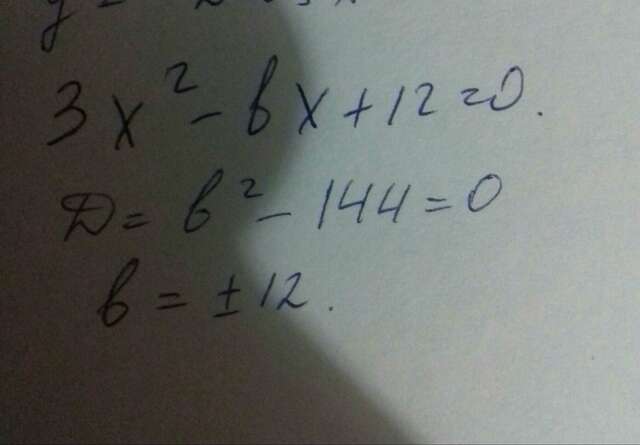 3x² - bx + 12 = 0.
D = b² - 144 = 0
b = ± 12.